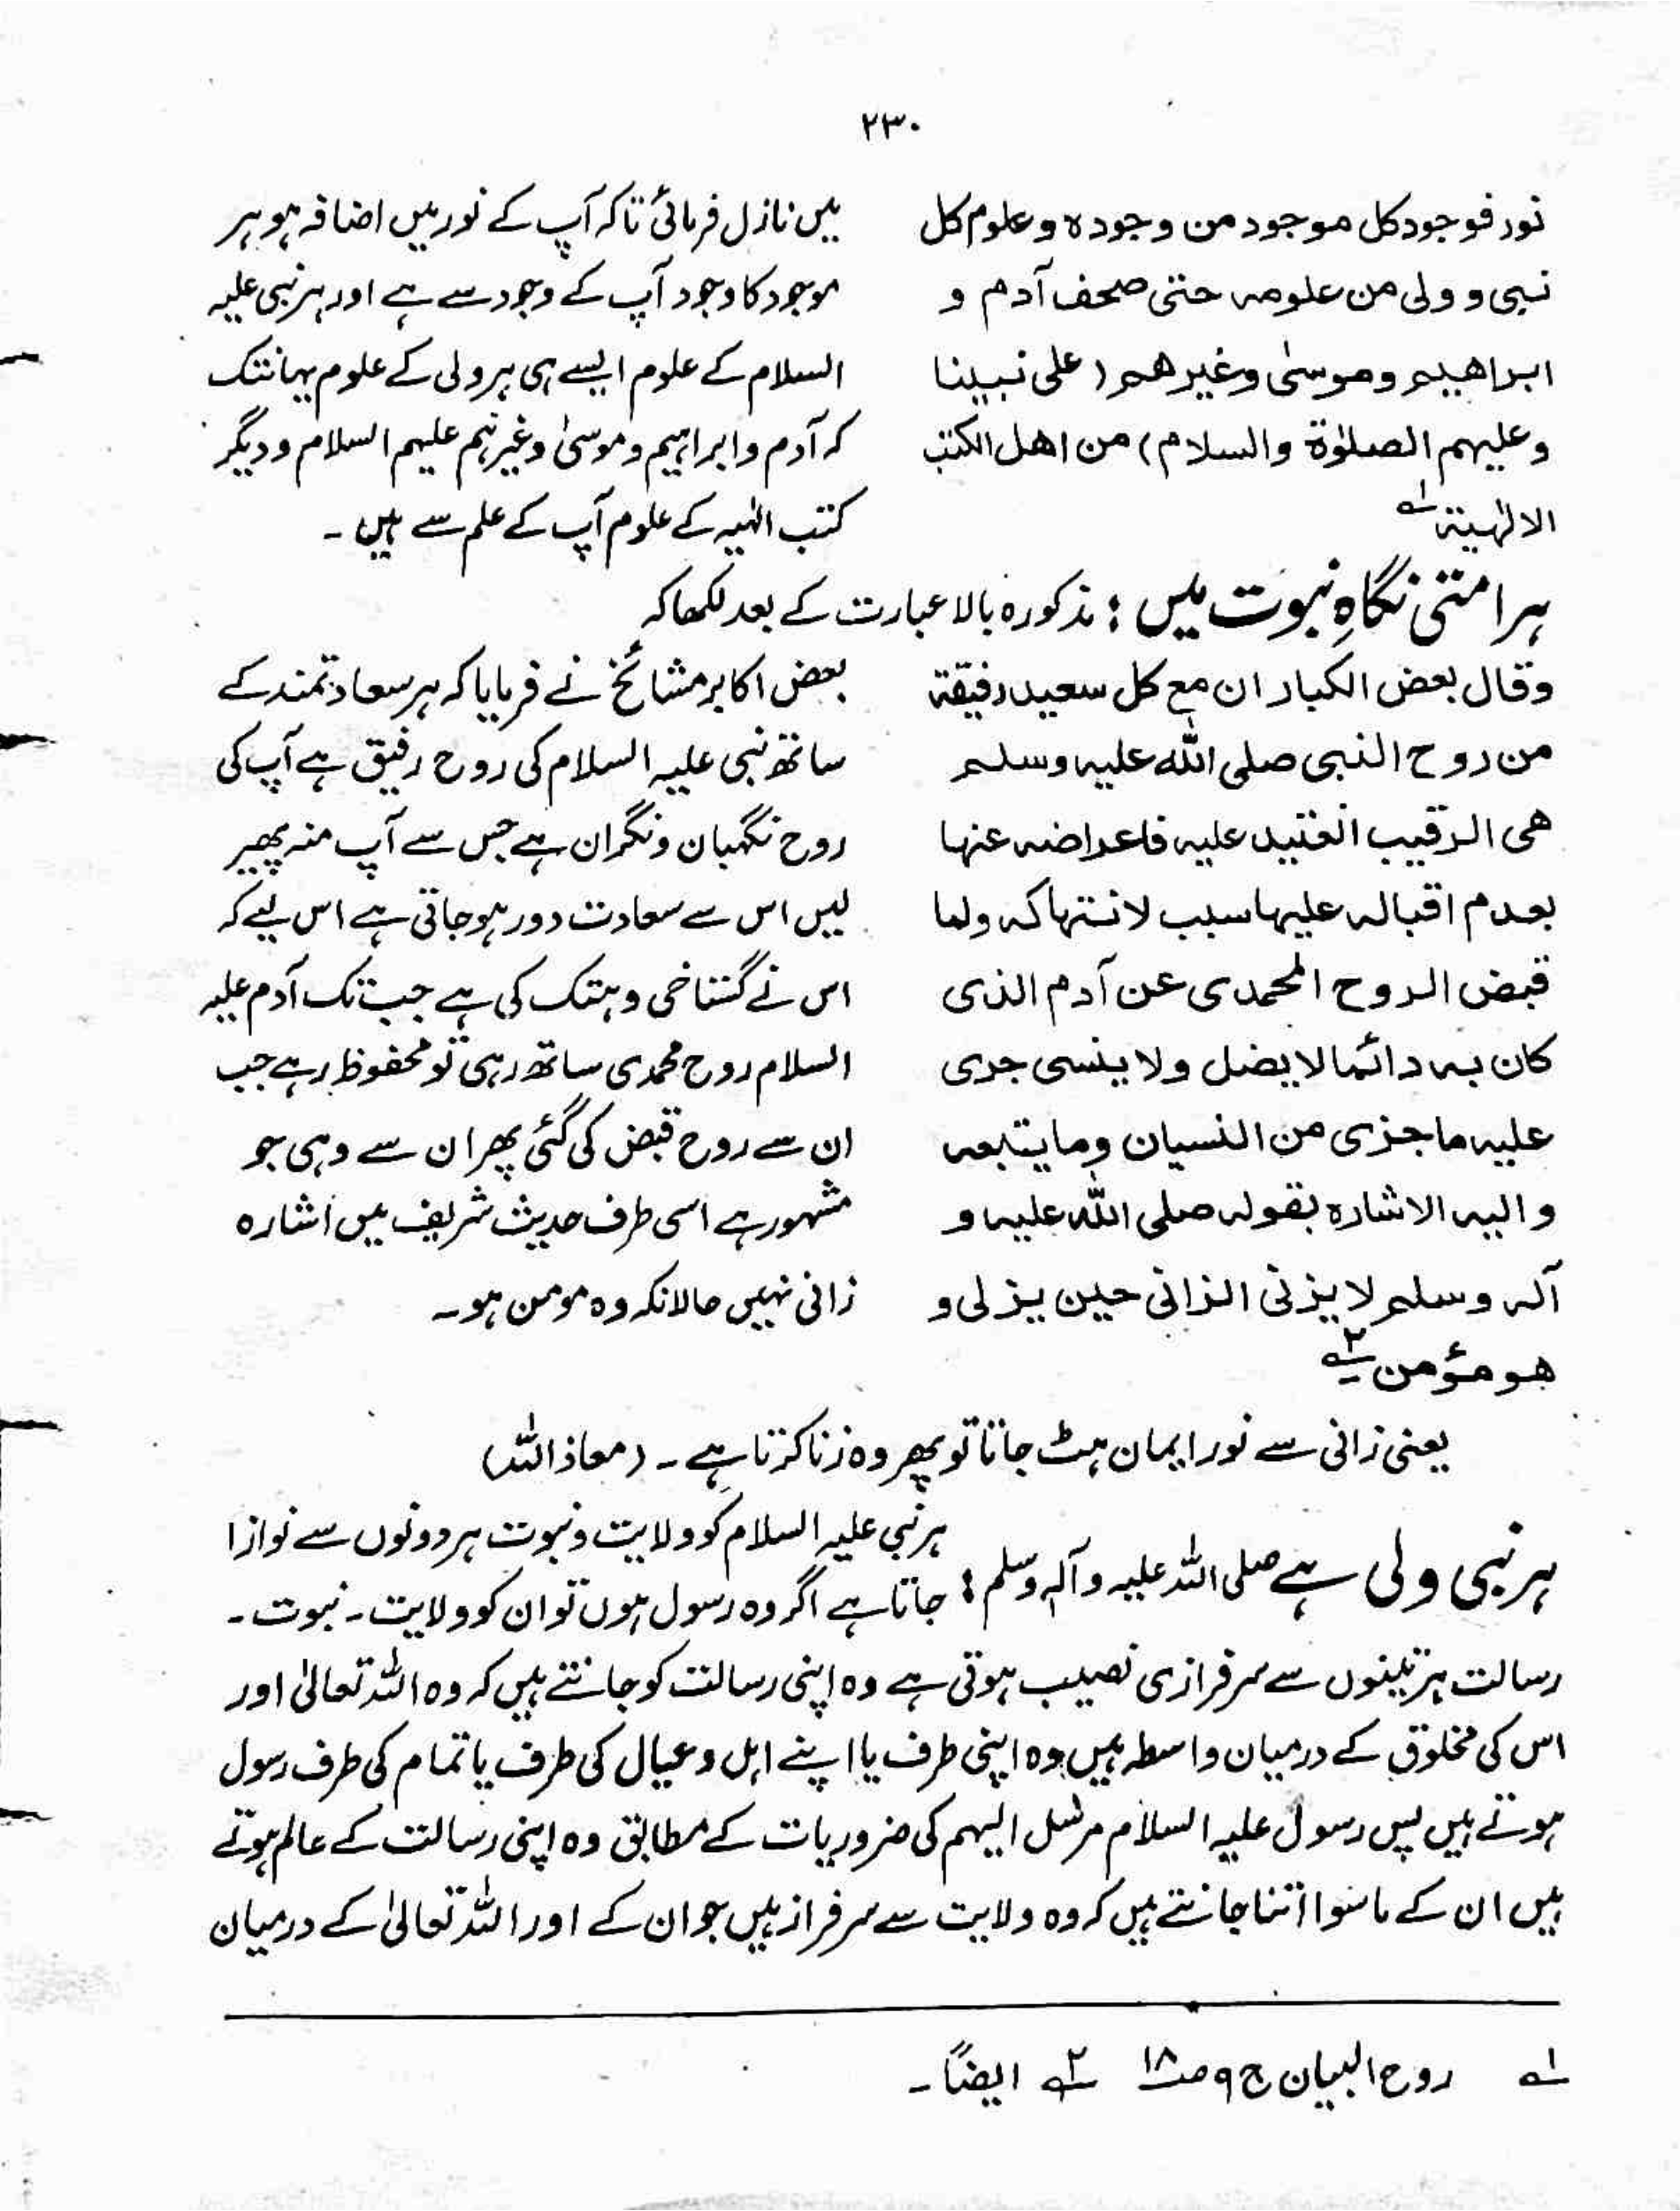 ۲۳۰
نور فوجود کل موجود من وجودہ و علوم کل
نبی و ولی من علومہ حتی صحف آدم و
ابراھیم وموسیٰ وغیرھم (علی نبینا
وعلیہم الصلوٰۃ والسلام) من اھل الکتب
الالٰہیۃ ؎۱
میں نازل فرمائی تاکہ آپ کے نور میں اضافہ ہو ہر
موجود کا وجود آپ کے وجود سے ہے اور ہر نبی علیہ
السلام کے علوم ایسے ہی ہر ولی کے علوم یہانتک
کہ آدم و ابراہیم و موسیٰ وغیرہم علیہم السلام و دیگر
کتب الٰہیہ کے علوم آپ کے علم سے ہیں ۔
ہر امتی نگاہِ نبوت میں : مذکورہ بالا عبارت کے بعد لکھا کہ
وقال بعض الکبار ان مع کل سعید رفیقۃ
من روح النبی صلی اللہ علیہ وسلم
ھی الرقیب العتید علیہ فاعراضہ عنہا
بعدم اقبالہ علیہا سبب لانتہاکہ ولما
قبض الروح المحمدی عن آدم الذی
کان بہ دائما لا یضل ولا ینسی جری
علیہ ما جزی من النسیان وما یتبعہ
والیہ الاشارہ بقولہ صلی اللہ علیہ و
آلہ وسلم لا یزنی الزانی حین یزنی و
ھو مؤمن ؎۲
بعض اکابر مشائخ نے فرمایا کہ ہر سعادتمند کے
ساتھ نبی علیہ السلام کی روح رفیق ہے آپ کی
روح نگہبان و نگران ہے جس سے آپ منہ پھیر
لیں اس سے سعادت دور ہوجاتی ہے اس لیے کہ
اس نے گستاخی و ہتک کی ہے جب تک آدم علیہ
السلام روح محمدی ساتھ رہی تو محفوظ رہے جب
ان سے روح قبض کی گئی پھر ان سے وہی جو
مشہور ہے اسی طرف حدیث شریف میں اشارہ
زانی نہیں حالانکہ وہ مومن ہو۔
یعنی زانی سے نور ایمان ہٹ جاتا تو پھر وہ زنا کرتا ہے ۔ (معاذ اللہ)
ہر نبی ولی ہے صلی اللہ علیہ وآلہٖ وسلم : ہر نبی علیہ السلام کو ولایت و نبوت ہر دونوں سے نوازا
جاتا ہے اگر وہ رسول ہوں تو ان کو ولایت ۔ نبوت ۔
رسالت ہر تینوں سے سرفرازی نصیب ہوتی ہے وہ اپنی رسالت کو جانتے ہیں کہ وہ اللہ تعالیٰ اور
اس کی مخلوق کے درمیان واسطہ ہیں وہ اپنی طرف یا اپنے اہل و عیال کی طرف یا تمام کی طرف رسول
ہوتے ہیں پس رسول علیہ السلام مرسل الیہم کی ضروریات کے مطابق وہ اپنی رسالت کے عالم ہوتے
ہیں ان کے ماسوا اتنا جانتے ہیں کہ وہ ولایت سے سرفراز ہیں جو ان کے اور اللہ تعالیٰ کے درمیان
؎۱ روح البیان ج ۹ ص ۱۸ ؎۲ ایضاً ۔